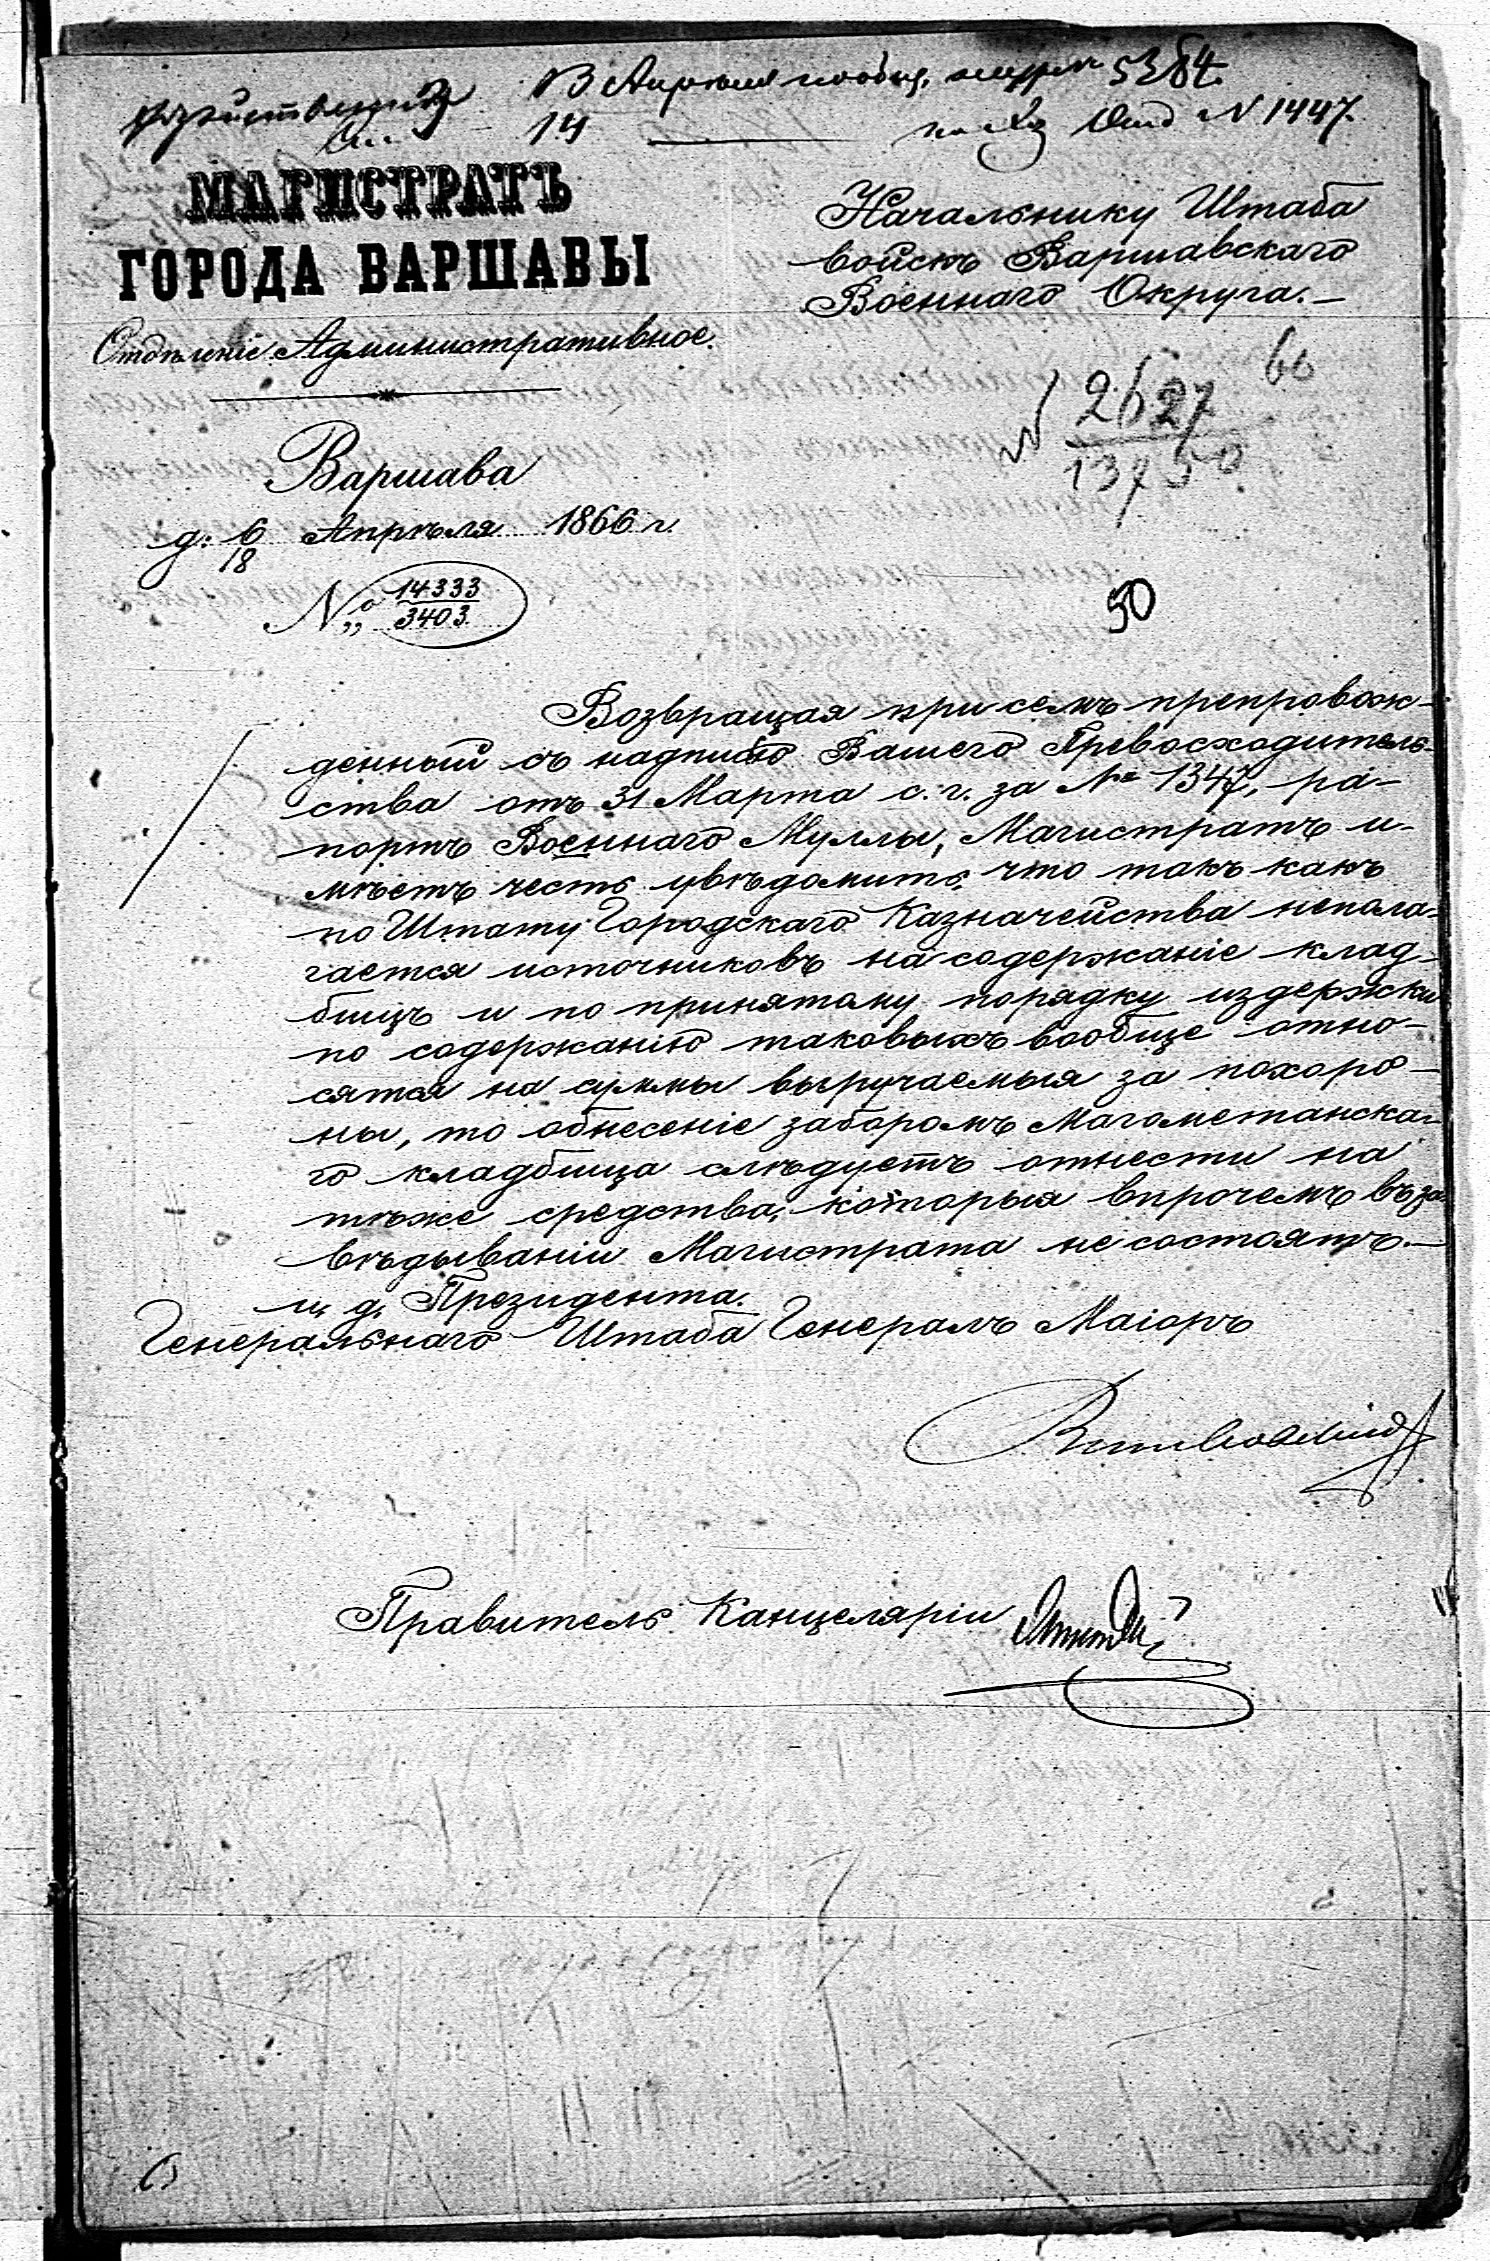 5384.
14 по Хоз Отд № 1447.
МАГИСТРАТЪ
ГОРОДА ВАРШАВЫ
Отдѣленіе Административное.
Варшава
д: 6/18 Апрѣля 1866 г.
№ 14333/3403.
Начальнику Штаба
войскъ Варшавскаго
Военнаго Округа.—
66
№ 2627
13750
50
Возвращая при семъ препровож-
денный съ надписью Вашего Превосходитель-
ства отъ 31 Марта с. г. за № 1347, ра-
портъ Военнаго Муллы, Магистратъ и-
мѣетъ честь увѣдомить, что такъ какъ
по Штату Городскаго Казначейства непола-
гается источниковъ на содержаніе клад-
бищъ и по принятому порядку издержки
по содержанію таковыхъ вообще отно-
сятся на суммы выручаемыя за похоро-
ны, то обнесеніе заборомъ Магометанска-
го кладбища слѣдуетъ отнести на
тѣже средства, которыя впрочемъ въ за-
вѣдываніи Магистрата не состоятъ.—
и, д, Президента.
Генеральнаго Штаба Генералъ Маіоръ
Витковскій
Правитель Канцеляріи